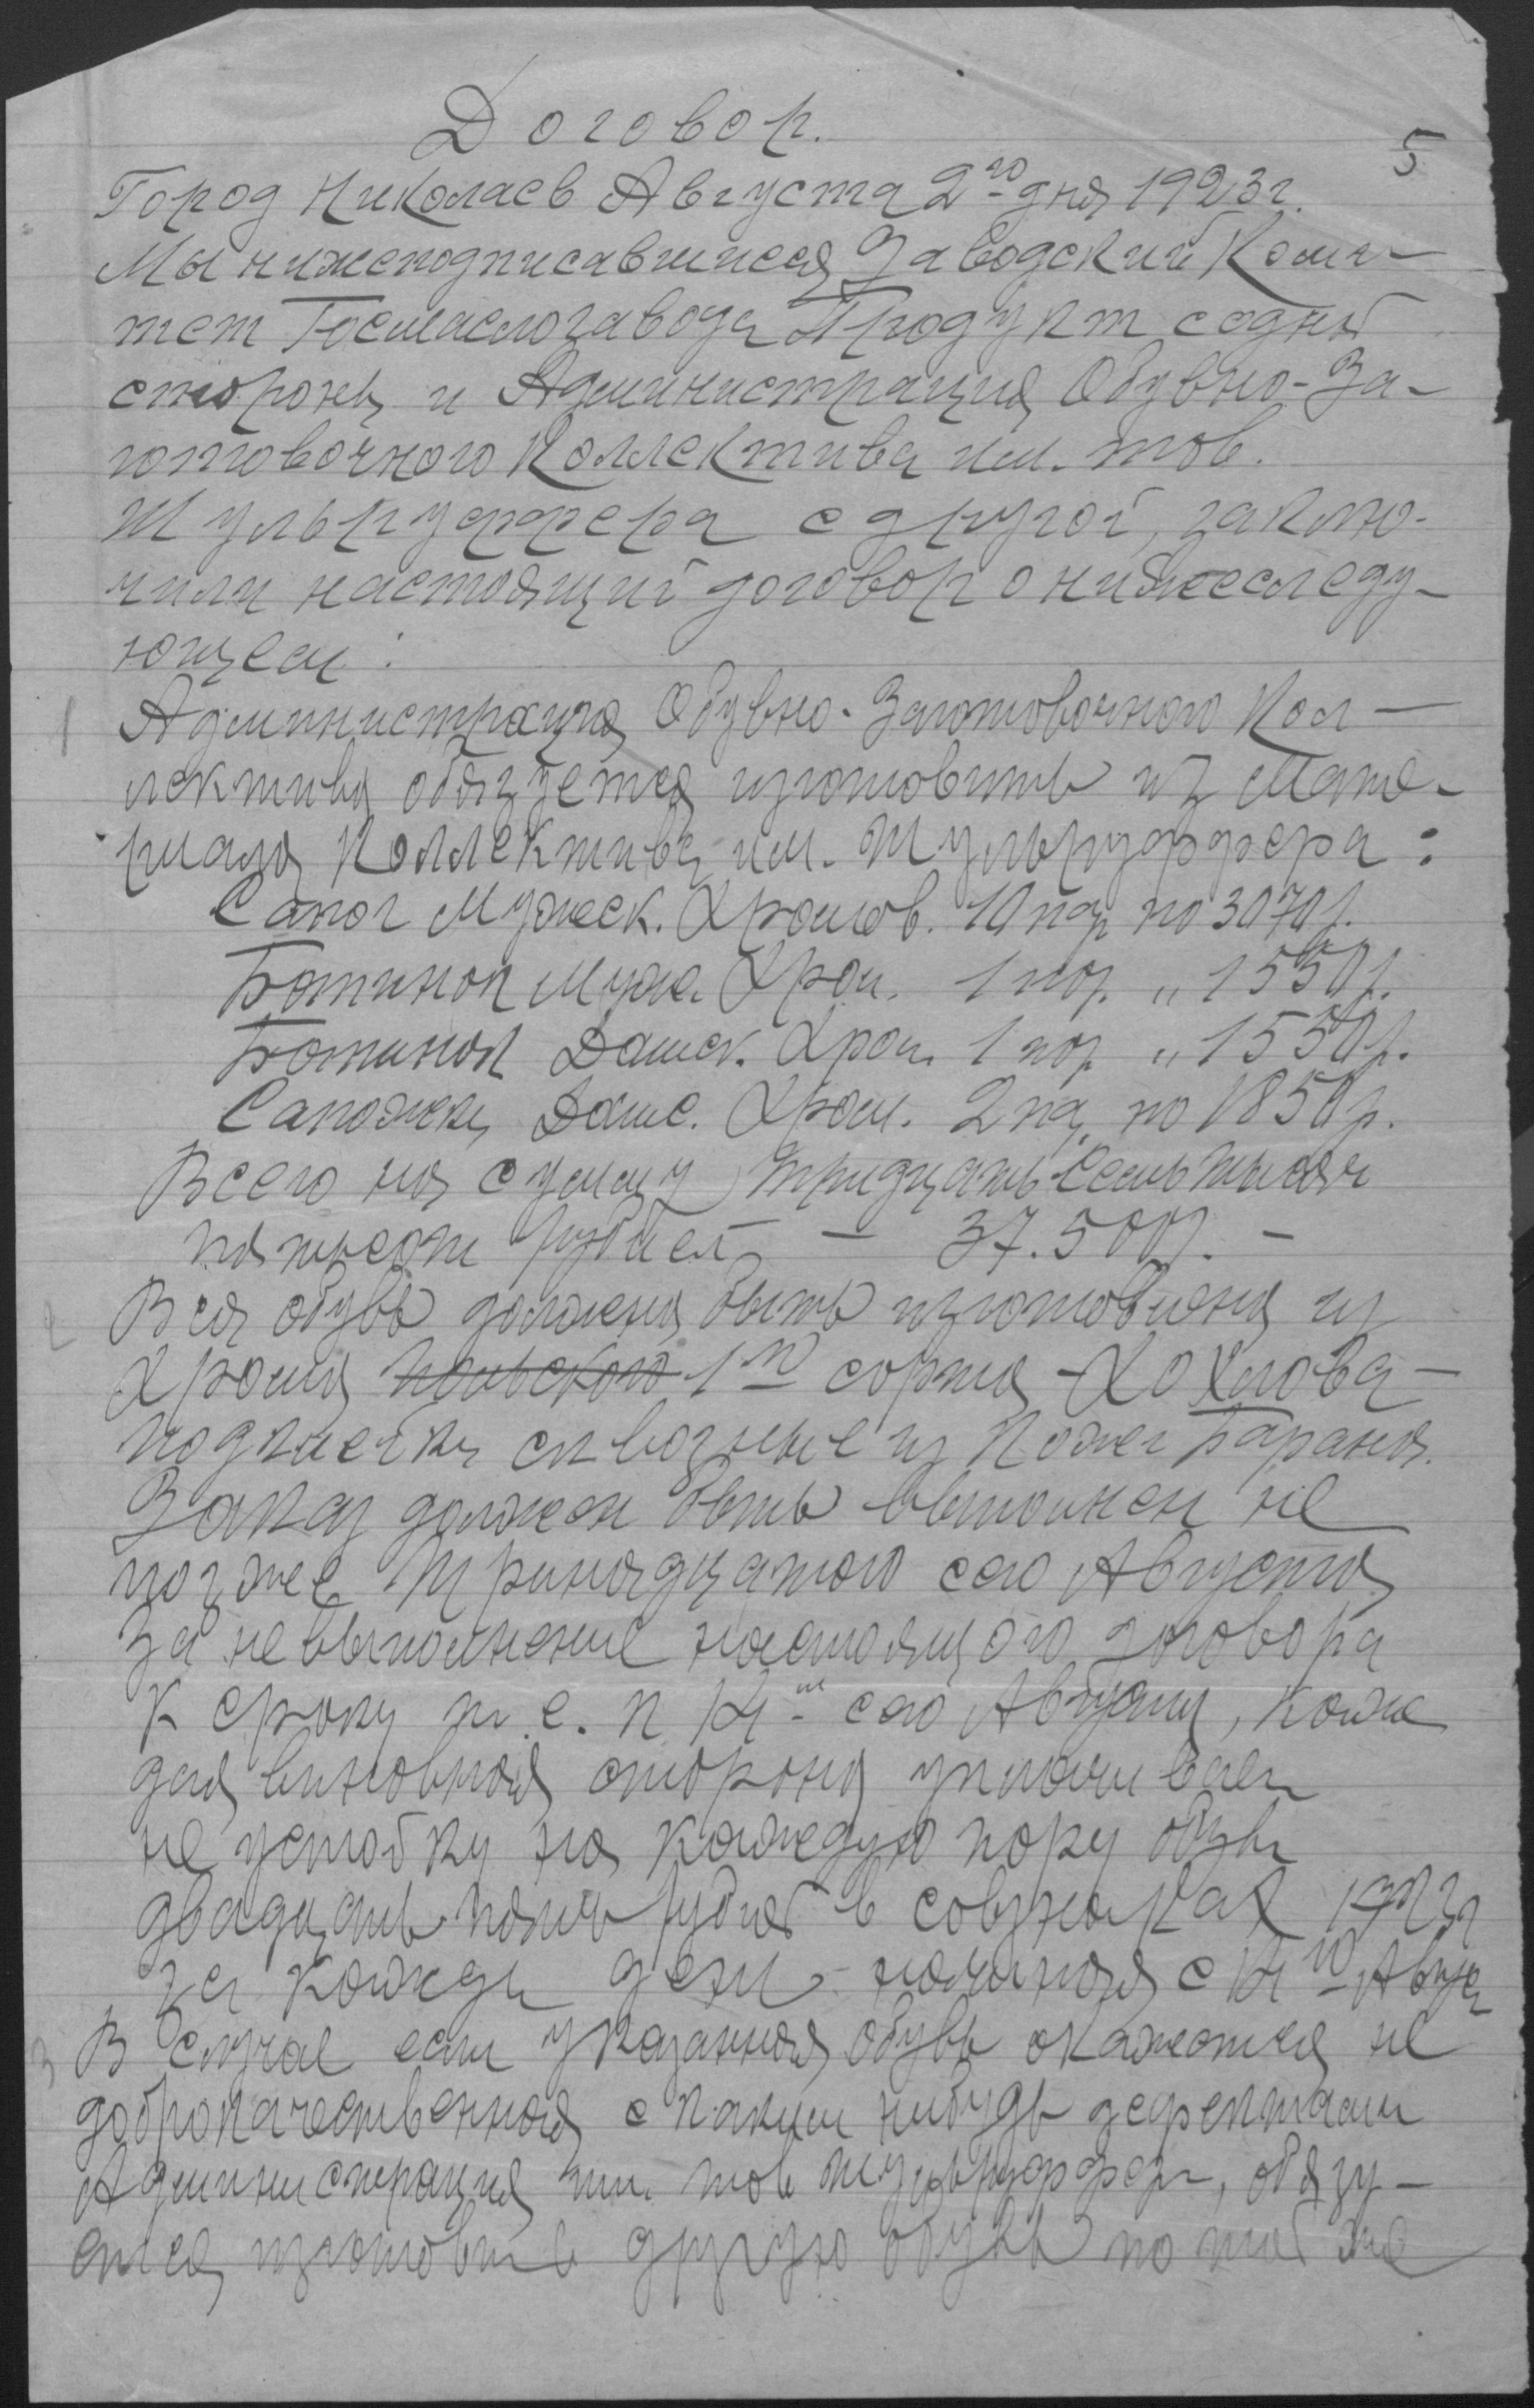 Договор.
5
Город Николаев Августа 2го дня 1923г.
Мы нижеподписавшиеся Заводский Коми-
тет Госмаслозавода Продукт с одной
стороны и Администрация Обувно-За-
готовочного Коллектива им. тов.
Шульруффера с другой, заклю-
чили настоящий договор о нижеследу-
ющем:
1 Администрация Обувно-Заготовочного Кол-
лектива обязуется изготовить из Мате-
риала Коллектива им. Шульруффера:
Сапог Мужеск. Хромов. 10 пар по 3070р.
Ботинок Мужс. Хром. 1 пар. " 1550р.
Ботинок Дамск. Хром. 1 пар. " 1550р.
Сапожки Дамс. Хром. 2 па. по 1850р.
Всего на сумму тридцать семь тысяч
пятьсот рублей — 37.500р. —
2 Вся обувь должна быть изготовлена из
Хрома польского 1го сорта - Хохлова -
подклейки сквозные из Кожи Барана.
Заказ должен быть выполнен не
позже тринадцатого сего Августа
За невыполнение настоящого договора
к сроку т.е. к 14 - сего Августа, каж
дая виновная сторона уплачивает
не устойку на каждую пару обуви
двадцать пять рублей в совзнаках 1923г
за кажды день начиная с 14го Авгус
3 В случае если указанная обувь окажется не
доброкачественная с каким нибудь дефектами
Администрация им. тов Шульруффера, обязу-
ется изготовить другую обувь по той же